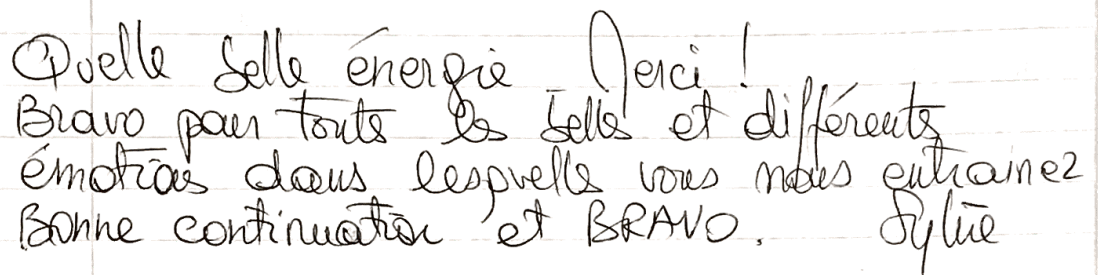 Quelle belle énergie Merci !
Bravo pour toutes les belles et différents
émotions dans lesquelles vous nous entrainez
Bonne continuation et BRAVO. Sylvie